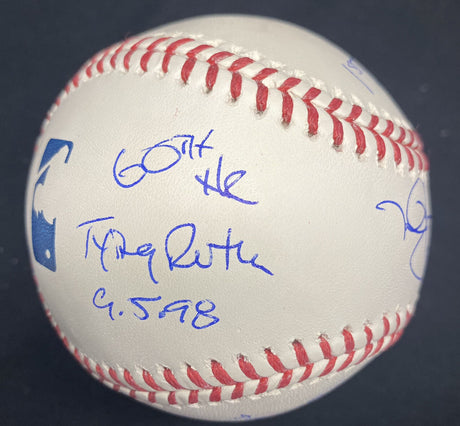 60TH
HR
Tying Ruth
9.5.98